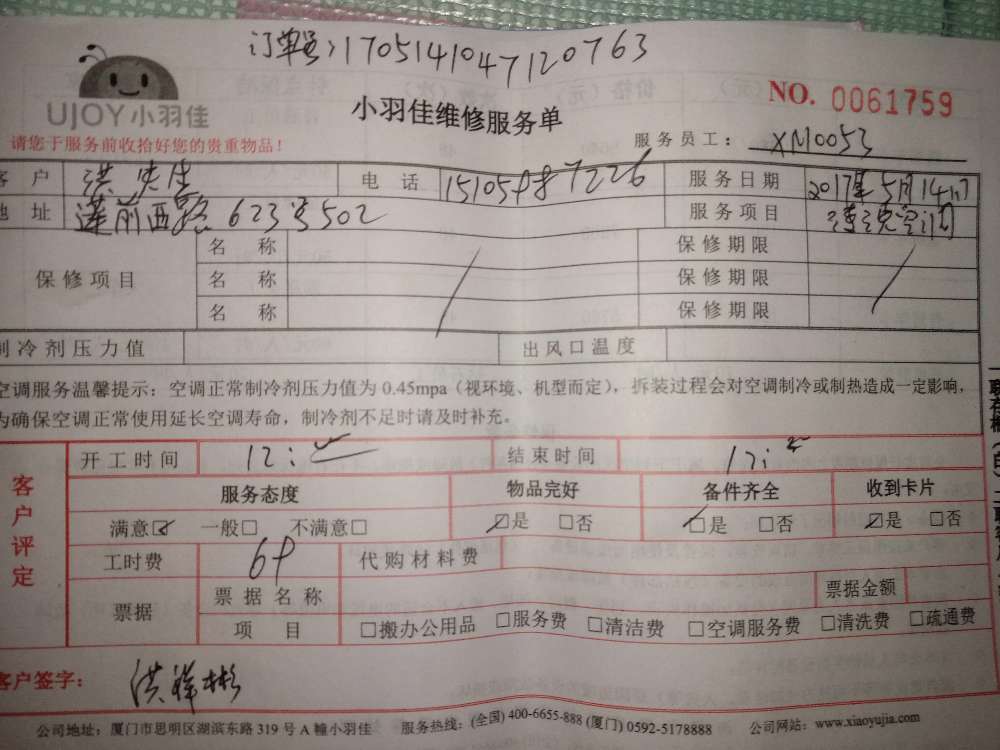 订单号:1705141047120763
UJOY小羽佳
小羽佳维修服务单
NO. 0061759
请您于服务前收拾好您的贵重物品!
服务员工: XM0053
客 户 洪先生 电 话 服务日期 2017年5月14日
地 址 莲前西路623号502 服务项目
保修项目 名 称 保修期限
名 称 保修期限
名 称 保修期限
制冷剂压力值 出风口温度
空调服务温馨提示:空调正常制冷剂压力值为0.45mpa(视环境、机型而定),拆装过程会对空调制冷或制热造成一定影响,
为确保空调正常使用延长空调寿命,制冷剂不足时请及时补充。
客户评定
开工时间 结束时间
服务态度 物品完好 备件齐全 收到卡片
满意☑ 一般□ 不满意□ ☑是 □否 ☑是 □否 ☑是 □否
工时费 代购材料费
票据 票据名称 票据金额
项 目 □搬办公用品 □服务费 □清洁费 □空调服务费 □清洗费 □疏通费
客户签字: 洪祥彬
公司地址:厦门市思明区湖滨东路319号A幢小羽佳 服务热线:(全国) 400-6655-888 (厦门) 0592-5178888 公司网站:www.xiaoyujia.com